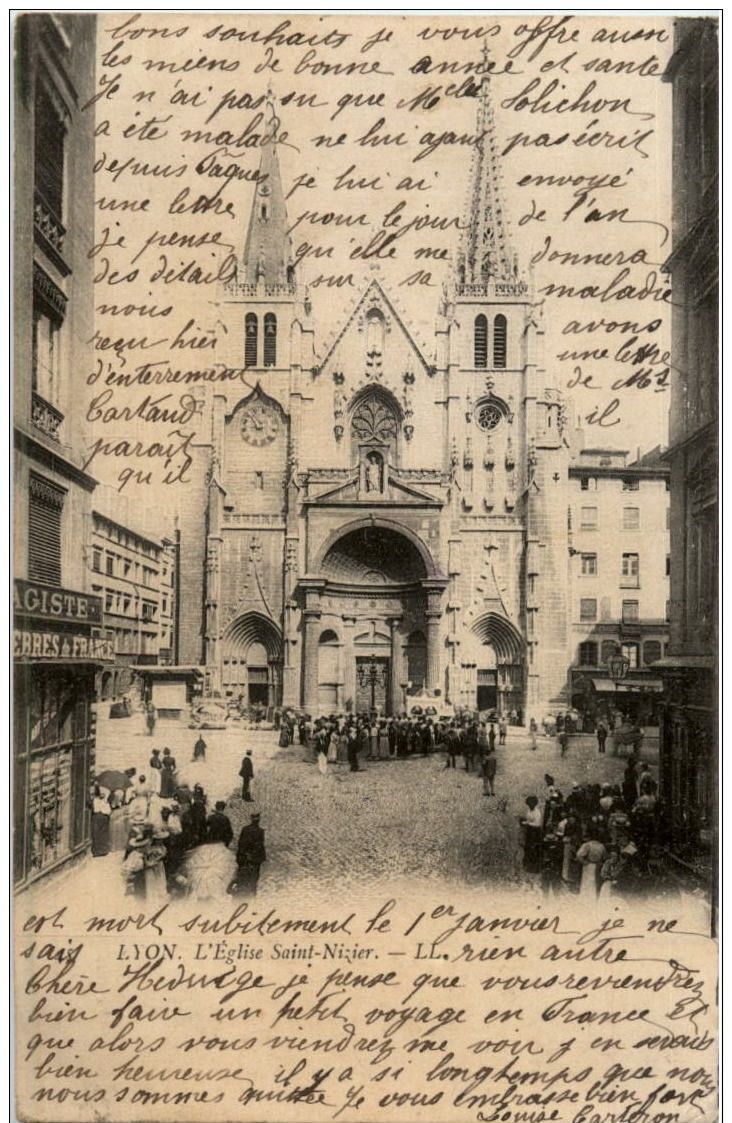 bons souhaits je vous offre aussi
les miens de bonne année et santé
Je n'ai pas su que Melle Solichon
a été malade ne lui ayant pas écrit
depuis Pâques je lui ai envoyé
une lettre pour le jour de l'an
je pense qu'elle me donnera
des détails sur sa maladie
nous avons
reçu hier une lettre
d'enterrement de Mr
Cartaud il
paraît
qu'il
AGISTE
EBRES de FRANCE
est mort subitement le 1er janvier je ne
sais rien autre
LYON. L'Église Saint-Nizier. — LL.
Chère Hedwige je pense que vous reviendrez
bien faire un petit voyage en France et
que alors vous viendrez me voir j'en serais
bien heureuse il y a si longtemps que nous
nous sommes Je vous embrasse bien fort
Louise Carteron